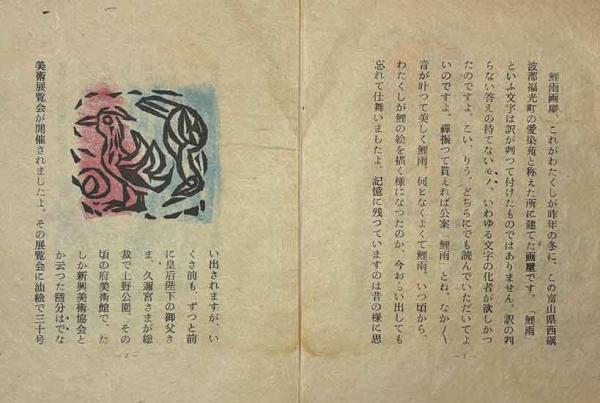 鯉雨画屋、これがわたくしが昨年の冬に、この富山県西礪
波郡福光町の愛染苑と称えた所に建てた画屋です。「鯉雨」
といふ文字は訳が判つて付けたものではありません。訳の判
らない答えの持てないモノ、いわゆる文字の化者が欲しかつ
たのですよ。こい、りう、どちらにでも読んでいただいてよ
いのですよ。禪振つて貰えれば公案「鯉雨」とね。なか〳〵
音が叶つて美しく鯉雨、何となくよくて鯉雨。いつ頃から、
わたくしが鯉の絵を描く様になつたのか、今おもい出しても
忘れて仕舞いましたよ。記憶に残つていますのは昔の様に思
- 1 -
い出されますが、い
くさ前も、ずつと前
に皇后陛下の御父さ
ま、久邇宮さまが総
裁で上野公園、その
頃の府美術館で、た
しか新興美術協会と
か云つた随分はでな
美術展覧会が開催されましたよ。その展覧会に油絵で三十号
- 2 -